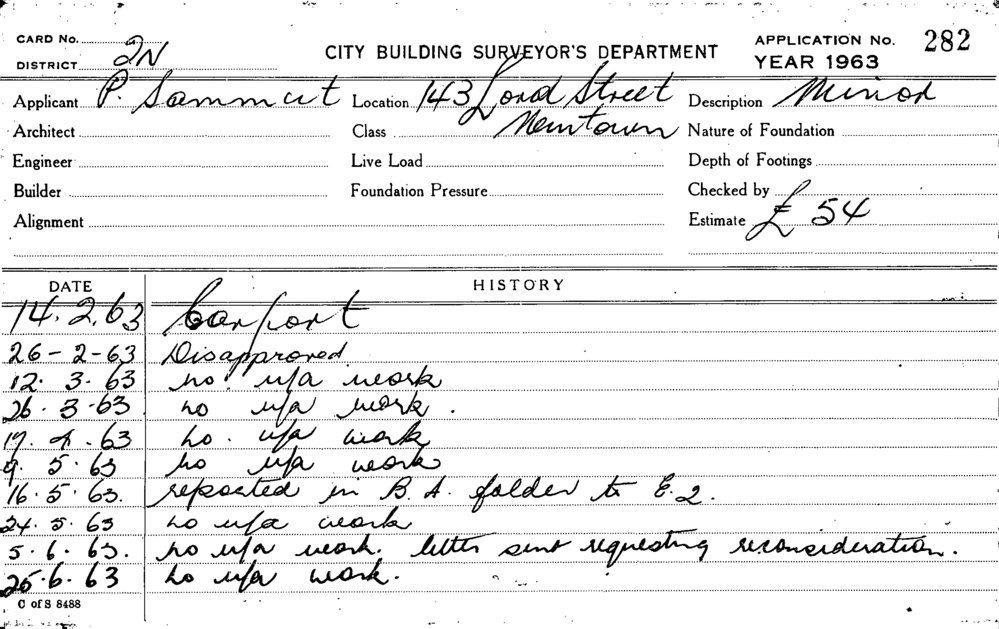 CARD No.
DISTRICT 2N
CITY BUILDING SURVEYOR'S DEPARTMENT
APPLICATION No. 282
YEAR 1963
Applicant P. Sammut Location 143 Lord Street Description Minor
Architect Class Newtown Nature of Foundation
Engineer Live Load Depth of Footings
Builder Foundation Pressure Checked by
Alignment Estimate £ 54
DATE HISTORY
14.2.63 Carport
26-2-63 Disapproved
12. 3. 63 no u/a work
26. 3. 63 no u/a work.
17. 4. 63 no. u/a work
9. 5. 63 no u/a work
16. 5. 63. reported in B. A. folder to E. 2.
24. 5. 63 no u/a work
5. 6. 63. no u/a work. letter sent requesting reconsideration.
25. 6. 63 no u/a work.
C of S 8488